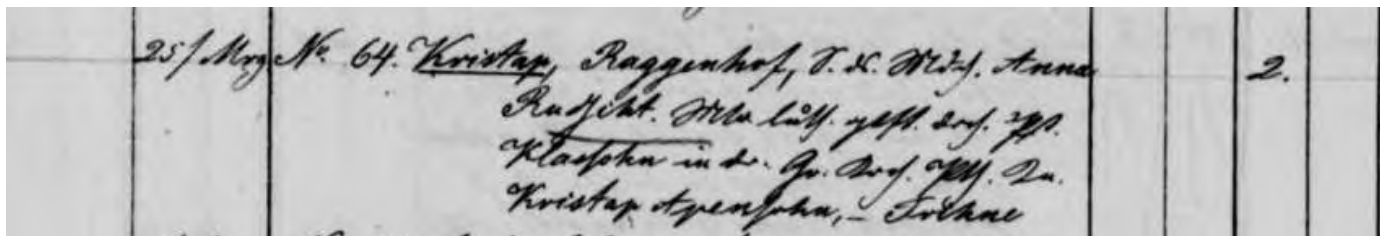 25/ Mrg No. 64. Kristap, Raggenhof, S. d. Mdch. Anna 2.
Rudsiht. Mtr. luth. getft. drch. Pst.
Klassohn in dr. Gr. Drch. Pth. Zu.
Kristap Apensohn, – Trihne